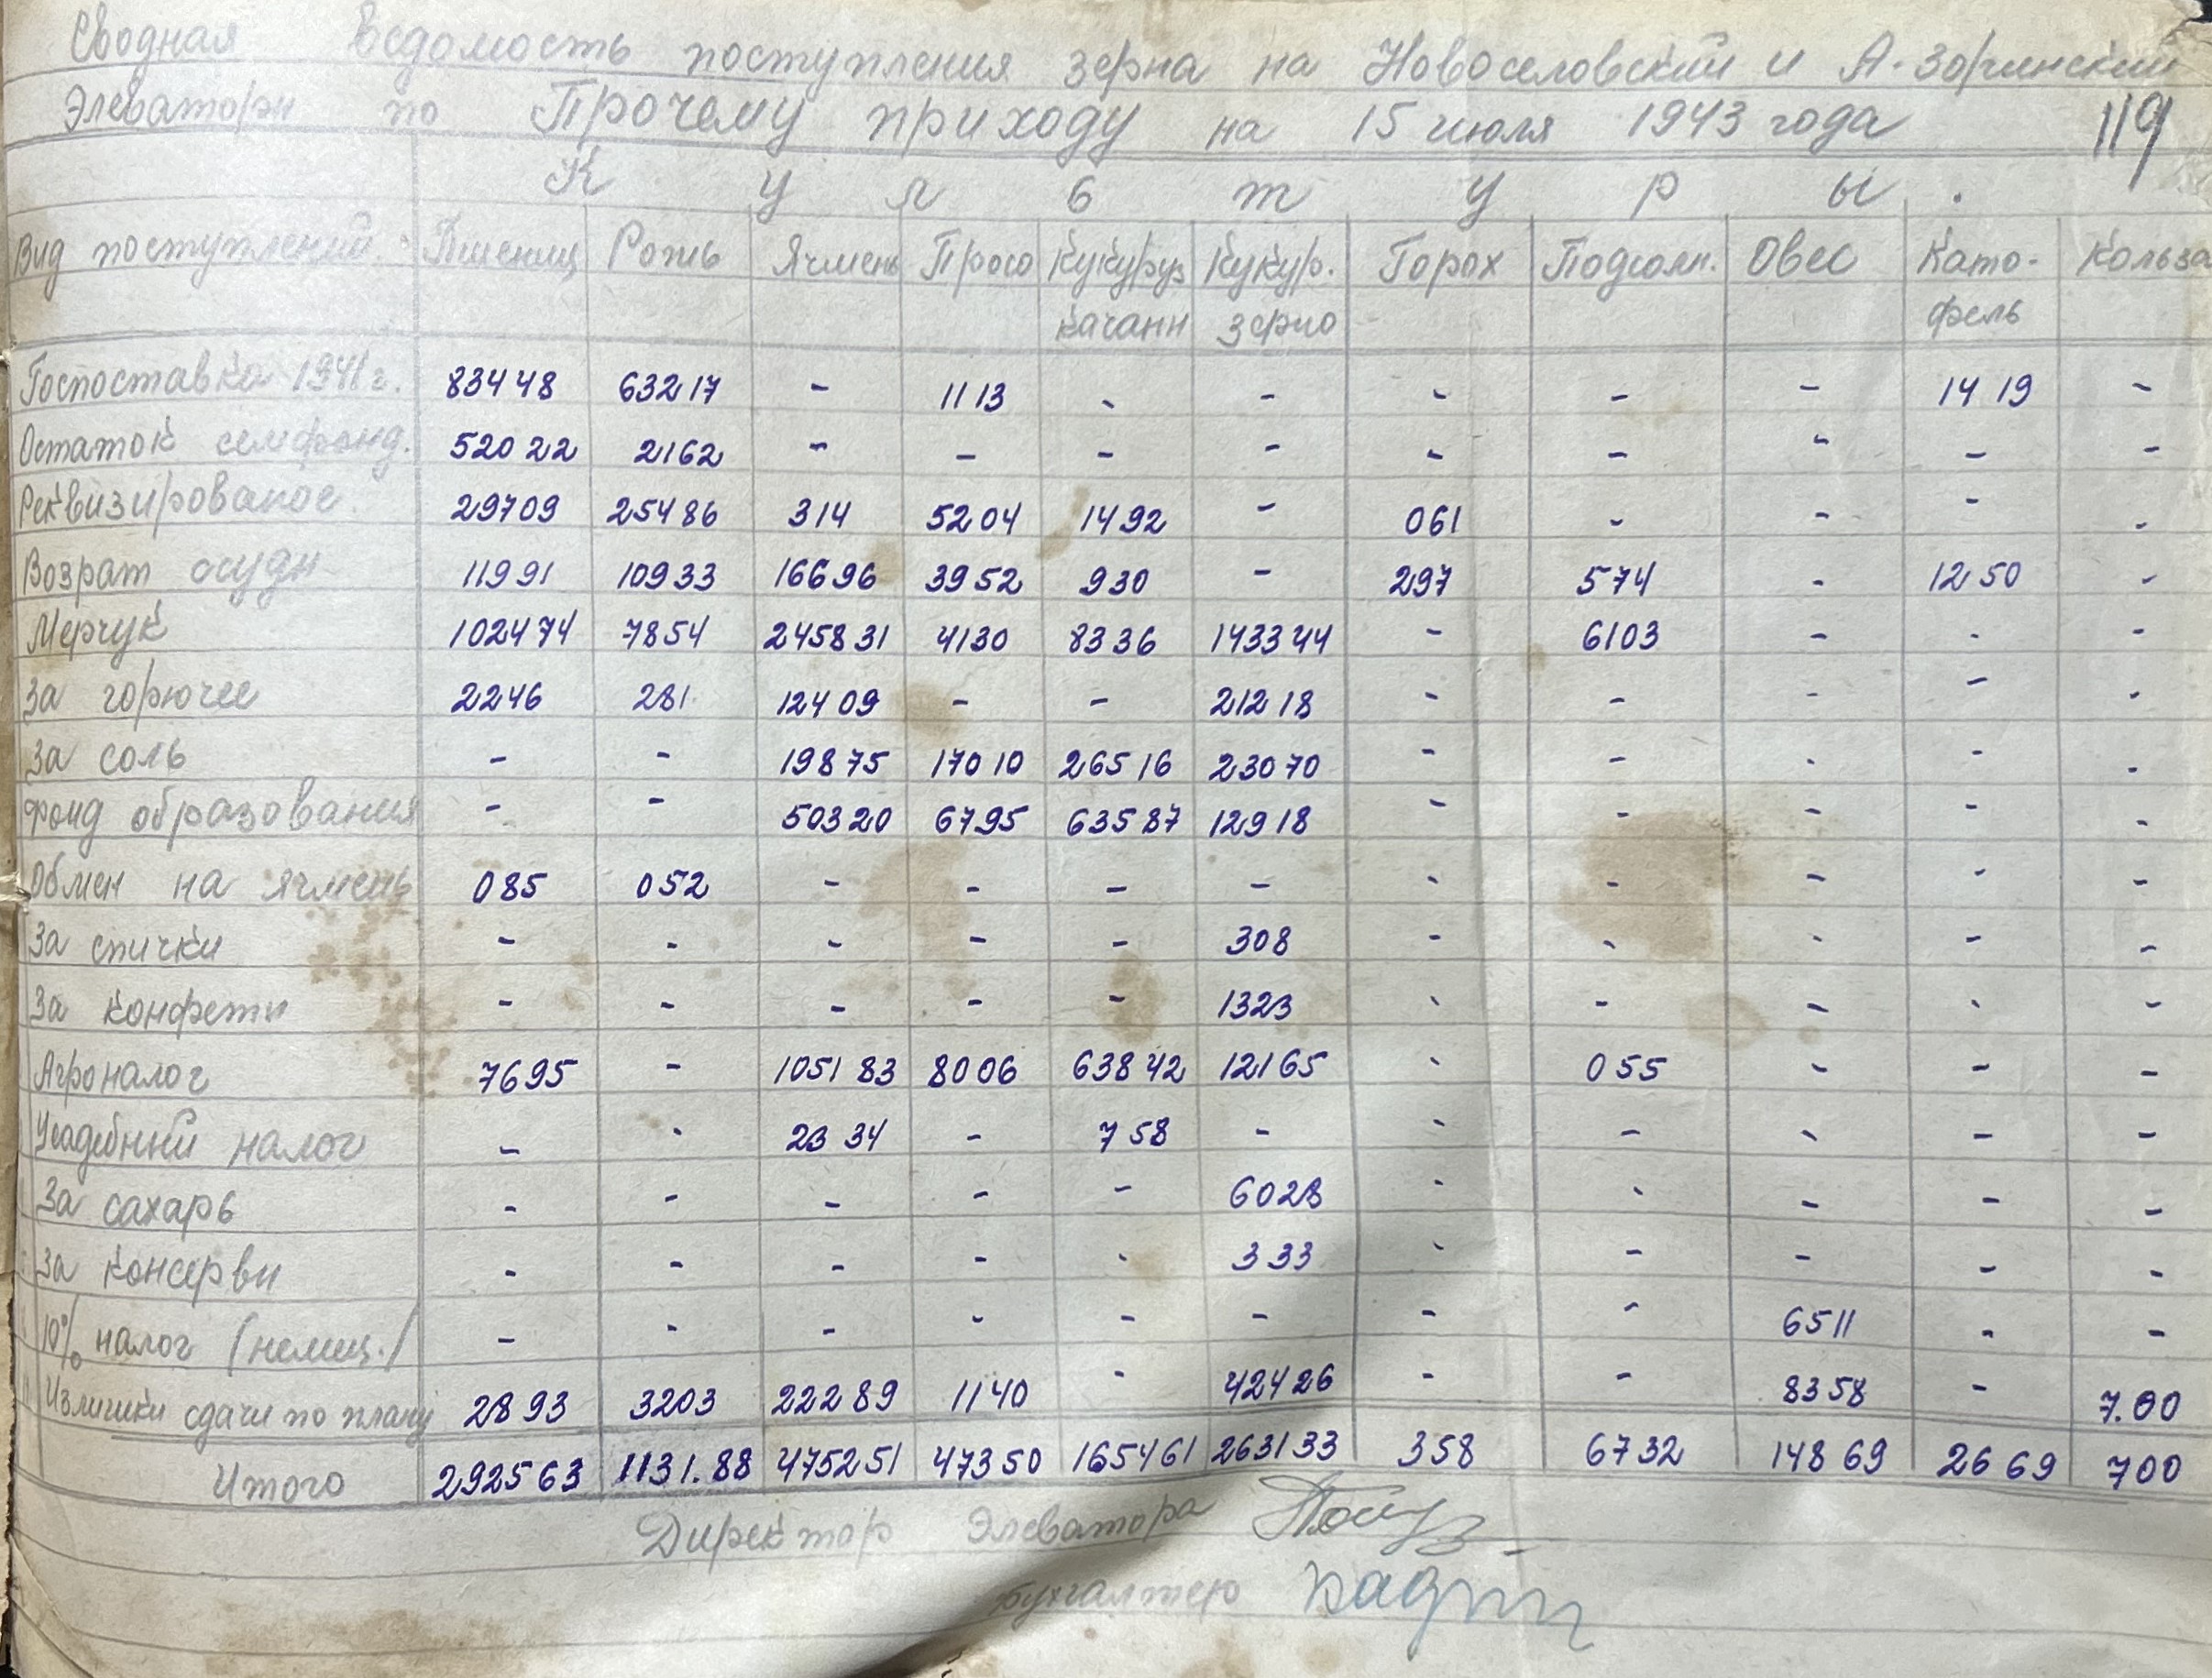 Сводная ведомость поступления зерна на Новоселовский и А-Зорчинский
Элеваторы по Прочему приходу на 15 июля 1943 года 119
К у л ь т у р ы .
Вид поступлений Пшениц Рожь Ячмень Просо Кукуруз качани Кукур. зерно Горох Подсолн. Овес Като-фель Кользa
Госпоставка 1941 г. 834 48 632 17 - 11 13 - - - - - 14 19 -
Остаток семфонд. 520 22 2162 - - - - - - - - -
Реквизированое 29709 254 86 314 52 04 14 92 - 061 - - - -
Возрат ссуди 119 91 109 33 166 96 39 52 930 - 297 574 - 12 50 -
Мерчук 1024 74 7854 2458 31 4130 83 36 1433 44 - 6103 - - -
За горючее 2246 281 124 09 - - 212 18 - - - - -
За соль - - 198 75 170 10 265 16 230 70 - - - - -
Фонд образования - - 503 20 6795 635 87 129 18 - - - - -
Обмен на ячмень 085 052 - - - - - - - - -
За спички - - - - - 308 - - - - -
За конфети - - - - - 1323 - - - - -
Агроналог 7695 - 1051 83 80 06 638 42 121 65 - 055 - - -
Усадебний налог - - 23 34 - 7 58 - - - - - -
За сахарь - - - - - 6028 - - - - -
За консерви - - - - - 3 33 - - - - -
10% налог (немец./ - - - - - - - - 65 11 - -
Излишки сдачи по плану 28 93 3203 222 89 11 40 - 424 26 - - 83 58 - 7.00
Итого 2925 63 1131.88 4752 51 473 50 1654 61 2631 33 358 67 32 148 69 26 69 700
Директор Элеватора
Бухгалтер